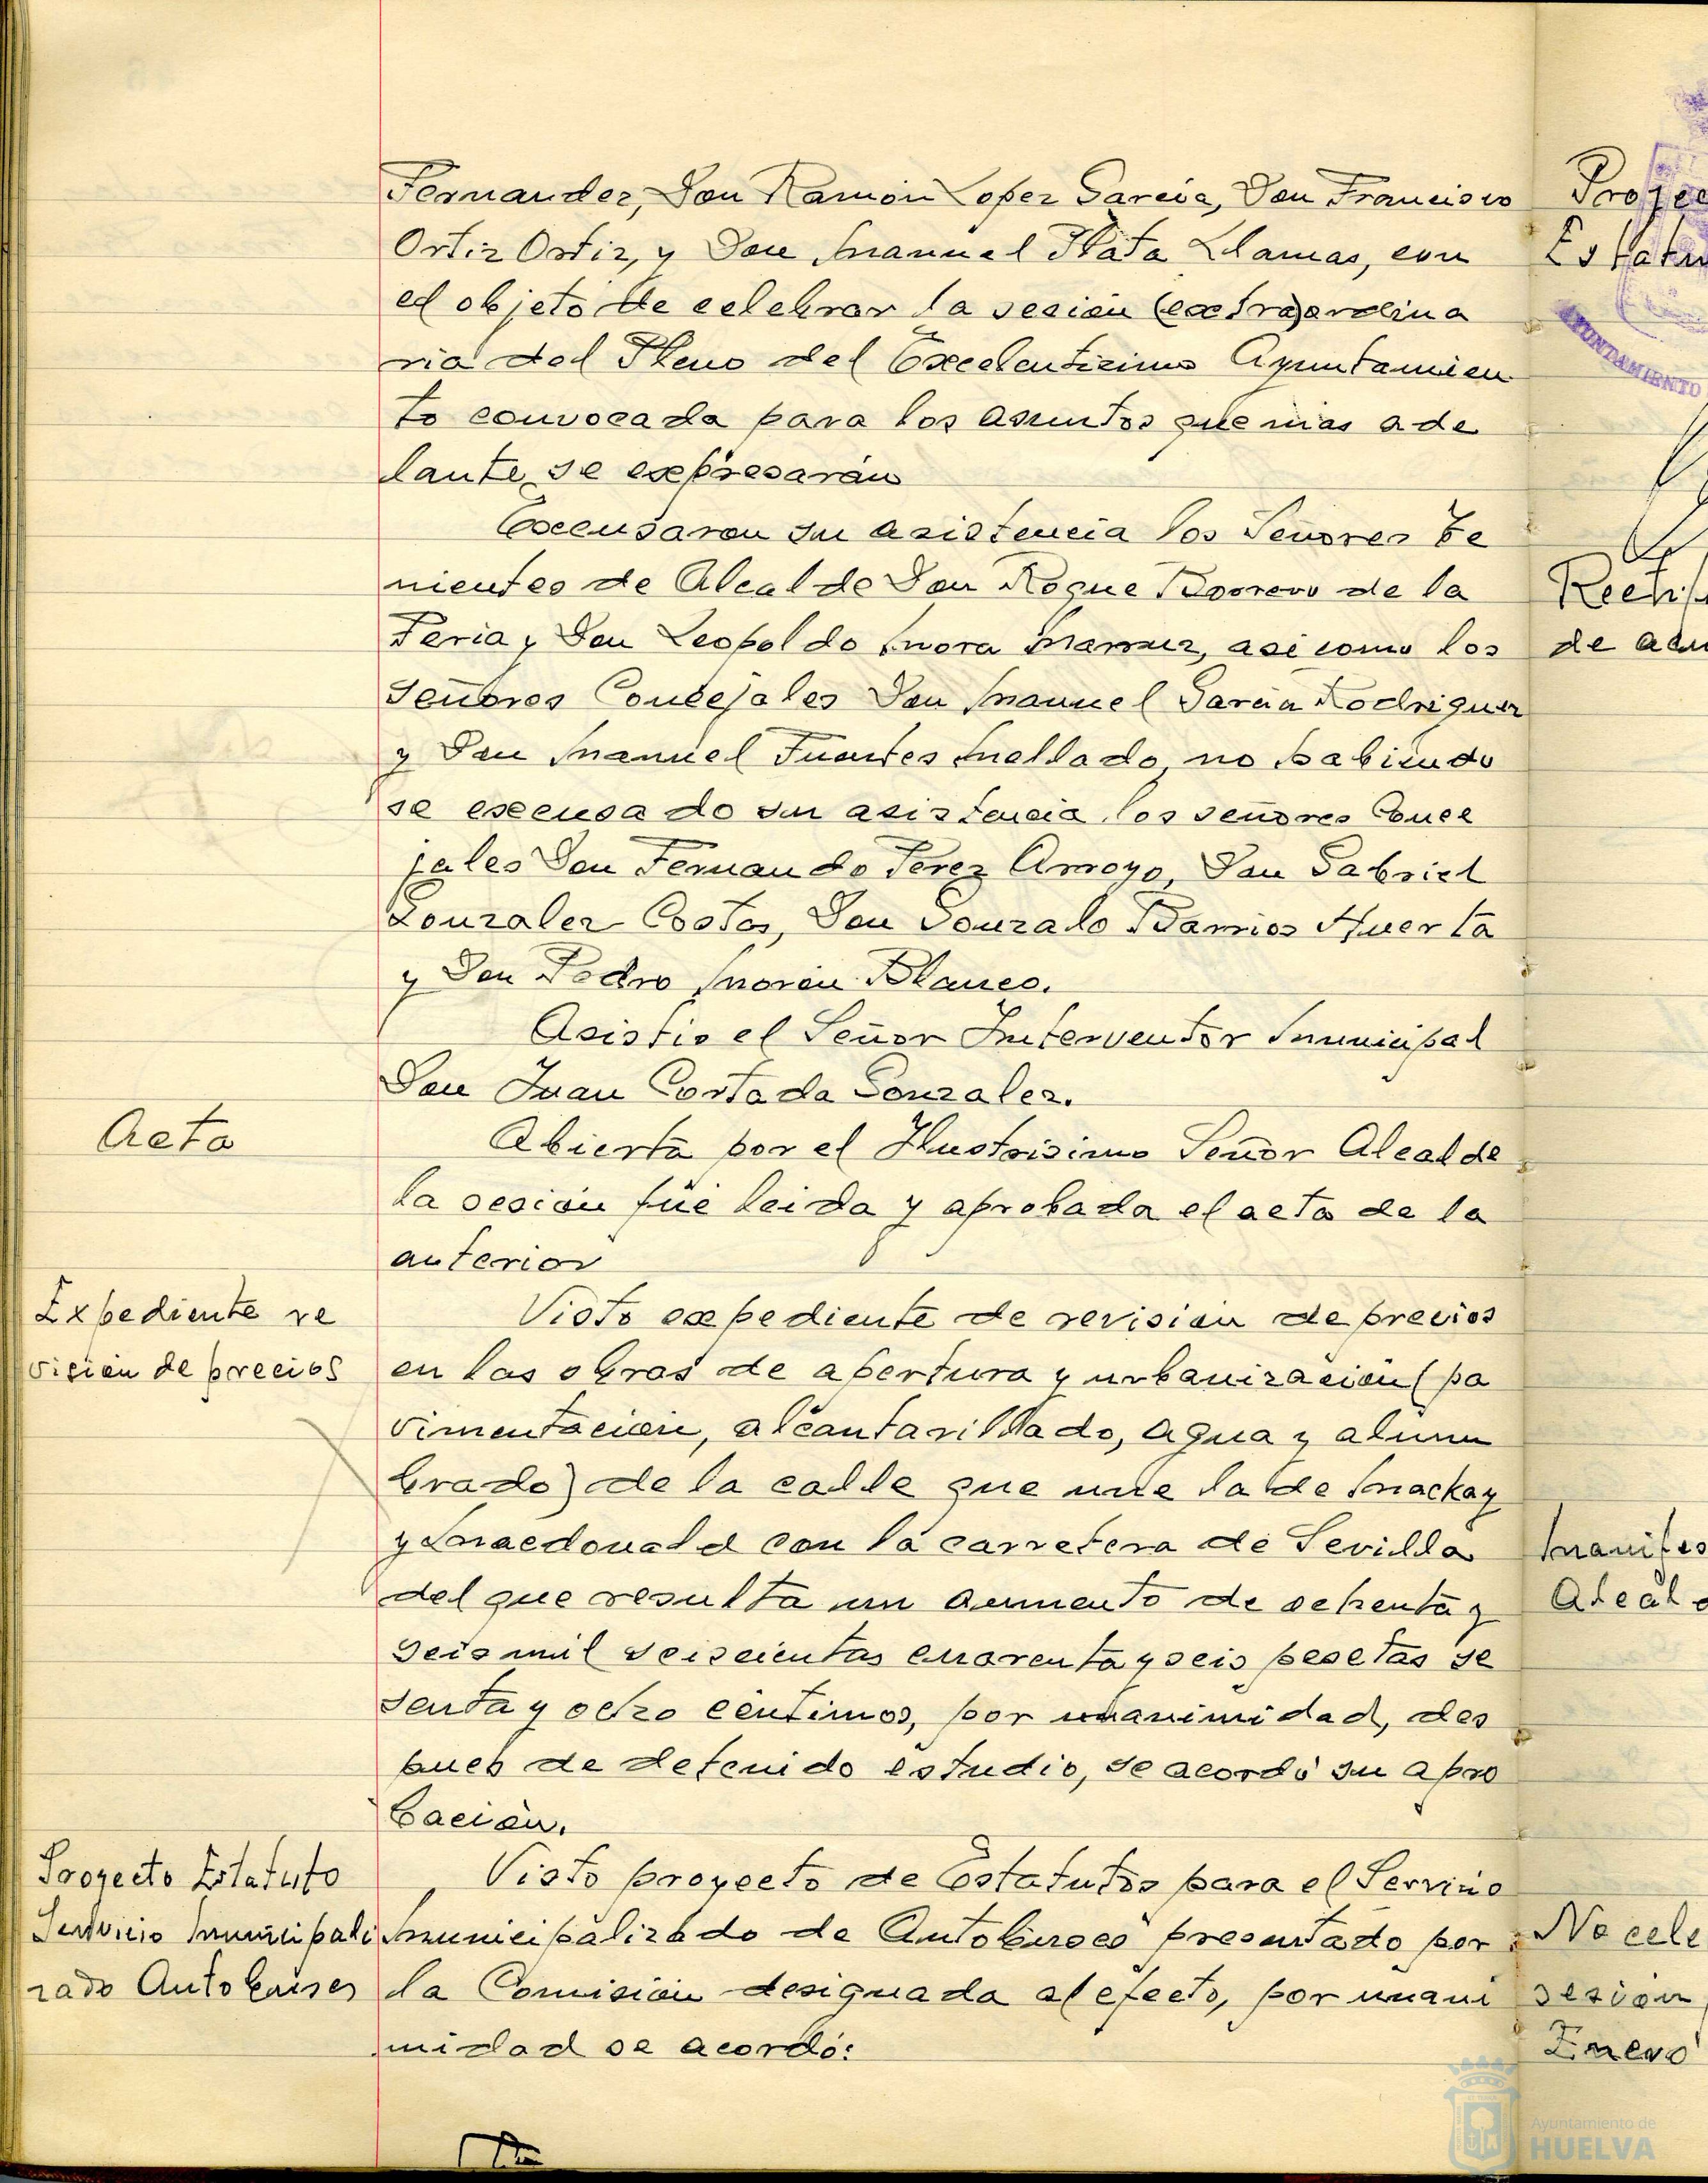 Fernandez, Don Ramón Lopez Garcia, Don Francisco
Ortiz Ortiz, y Don Manuel Plata Llamas, con
el objeto de celebrar la sesión (extra)ordina
ria del Pleno del Excelentisimo Ayuntamien
to convocada para los asuntos que mas ade
lante se expresarán
Excusaron su asistencia los Señores Te
nientes de Alcalde Don Roque Borrero de la
Feria y Don Leopoldo Mora asi como los
Señores Concejales Don Manuel Garcia Rodriguez
y Don Manuel Fuentes Mellado, no habiendo
se excusado su asistencia los señores Conce
jales Don Fernando Perez Arroyo, Don Gabriel
Gonzalez Costas, Don Gonzalo Barrios Huerta
y Don Pedro Morón Blanco.
Asistio el Señor Interventor Municipal
Don Juan Cortada Gonzalez.
Acta
Abierta por el Ilustrisimo Señor Alcalde
la sesión fué leida y aprobada el acta de la
anterior
Expediente re
visión de precios
Visto expediente de revisión de precios
en las obras de apertura y urbanización (pa
vimentación, alcantarillado, agua y alum
brado) de la calle que une la de Mackay
y Macdonald con la carretera de Sevilla
del que resulta un aumento de ochenta y
seis mil seiscientas cuarenta y seis pesetas se
senta y ocho céntimos, por unanimidad, des
pues de detenido estudio, se acordó su apro
bación.
Proyecto Estatuto
Servicio Municipali
zado Autobuses
Visto proyecto de Estatutos para el Servicio
Municipalizado de Autobuses presentado por
la Comisión designada al efecto, por unani
midad se acordó:
Proyec
Estatu
AYUNTAMIENTO
Rectif
de acu
Manifes
Alcal
No cele
sesión
Enero
Ayuntamiento de
HUELVA